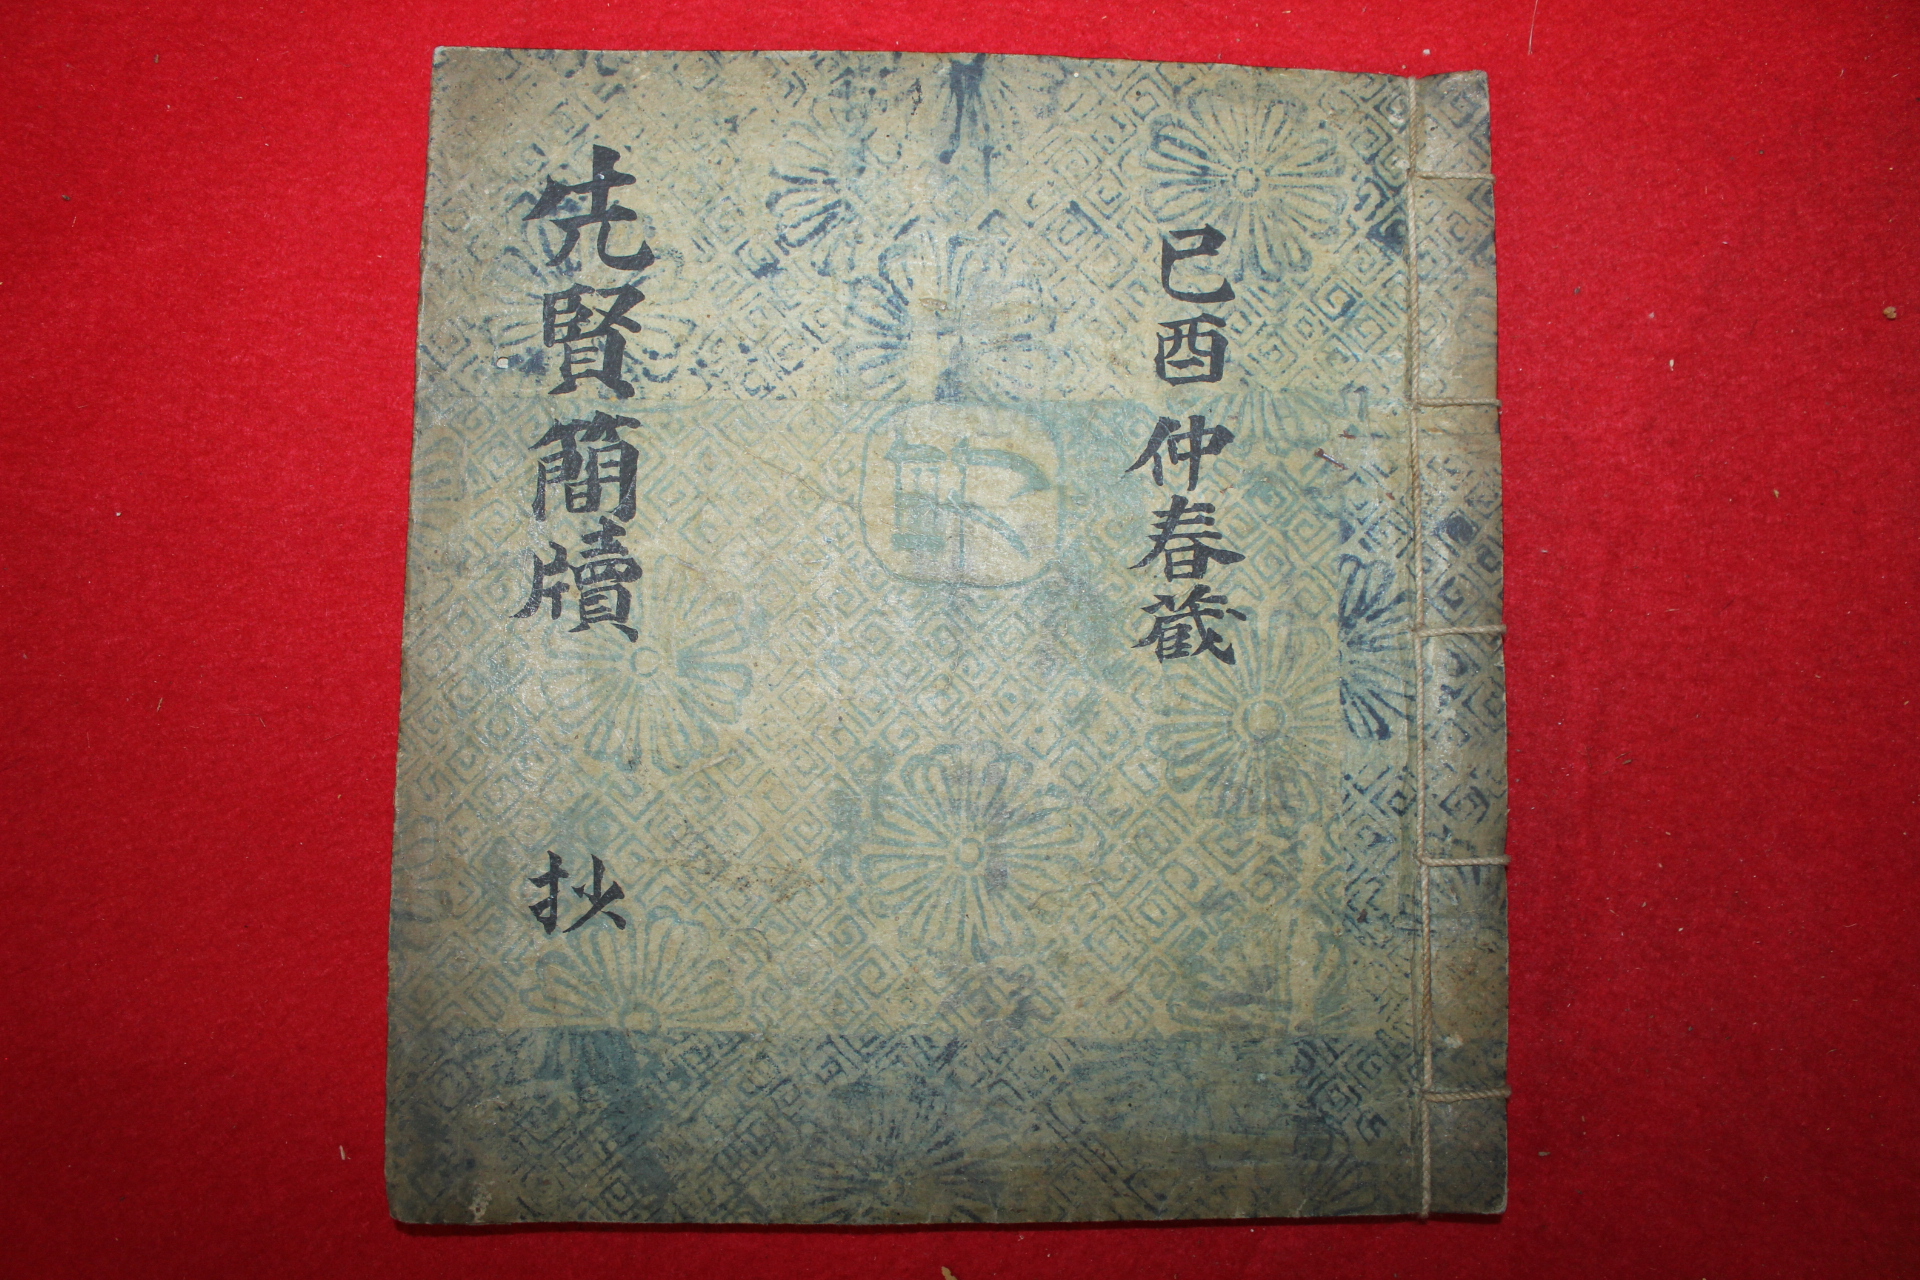 己酉仲春藏
先賢簡牘 抄